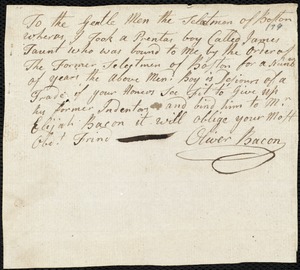 To the Gentle Men the Selitmen of Boston
179
wheras I Took a Prentas boy Called James
Faunt who was bound to Me by the Order of
The Former Selegtmen of Boston for a Numbr
of years the above Men: Boy is Desiours of a
Trade if your Honers See Fit to Give up
his former Indentor and bind him to Mr
Elijah Bacon it will oblige your Most
Obe: Frind
Oliver Bacon